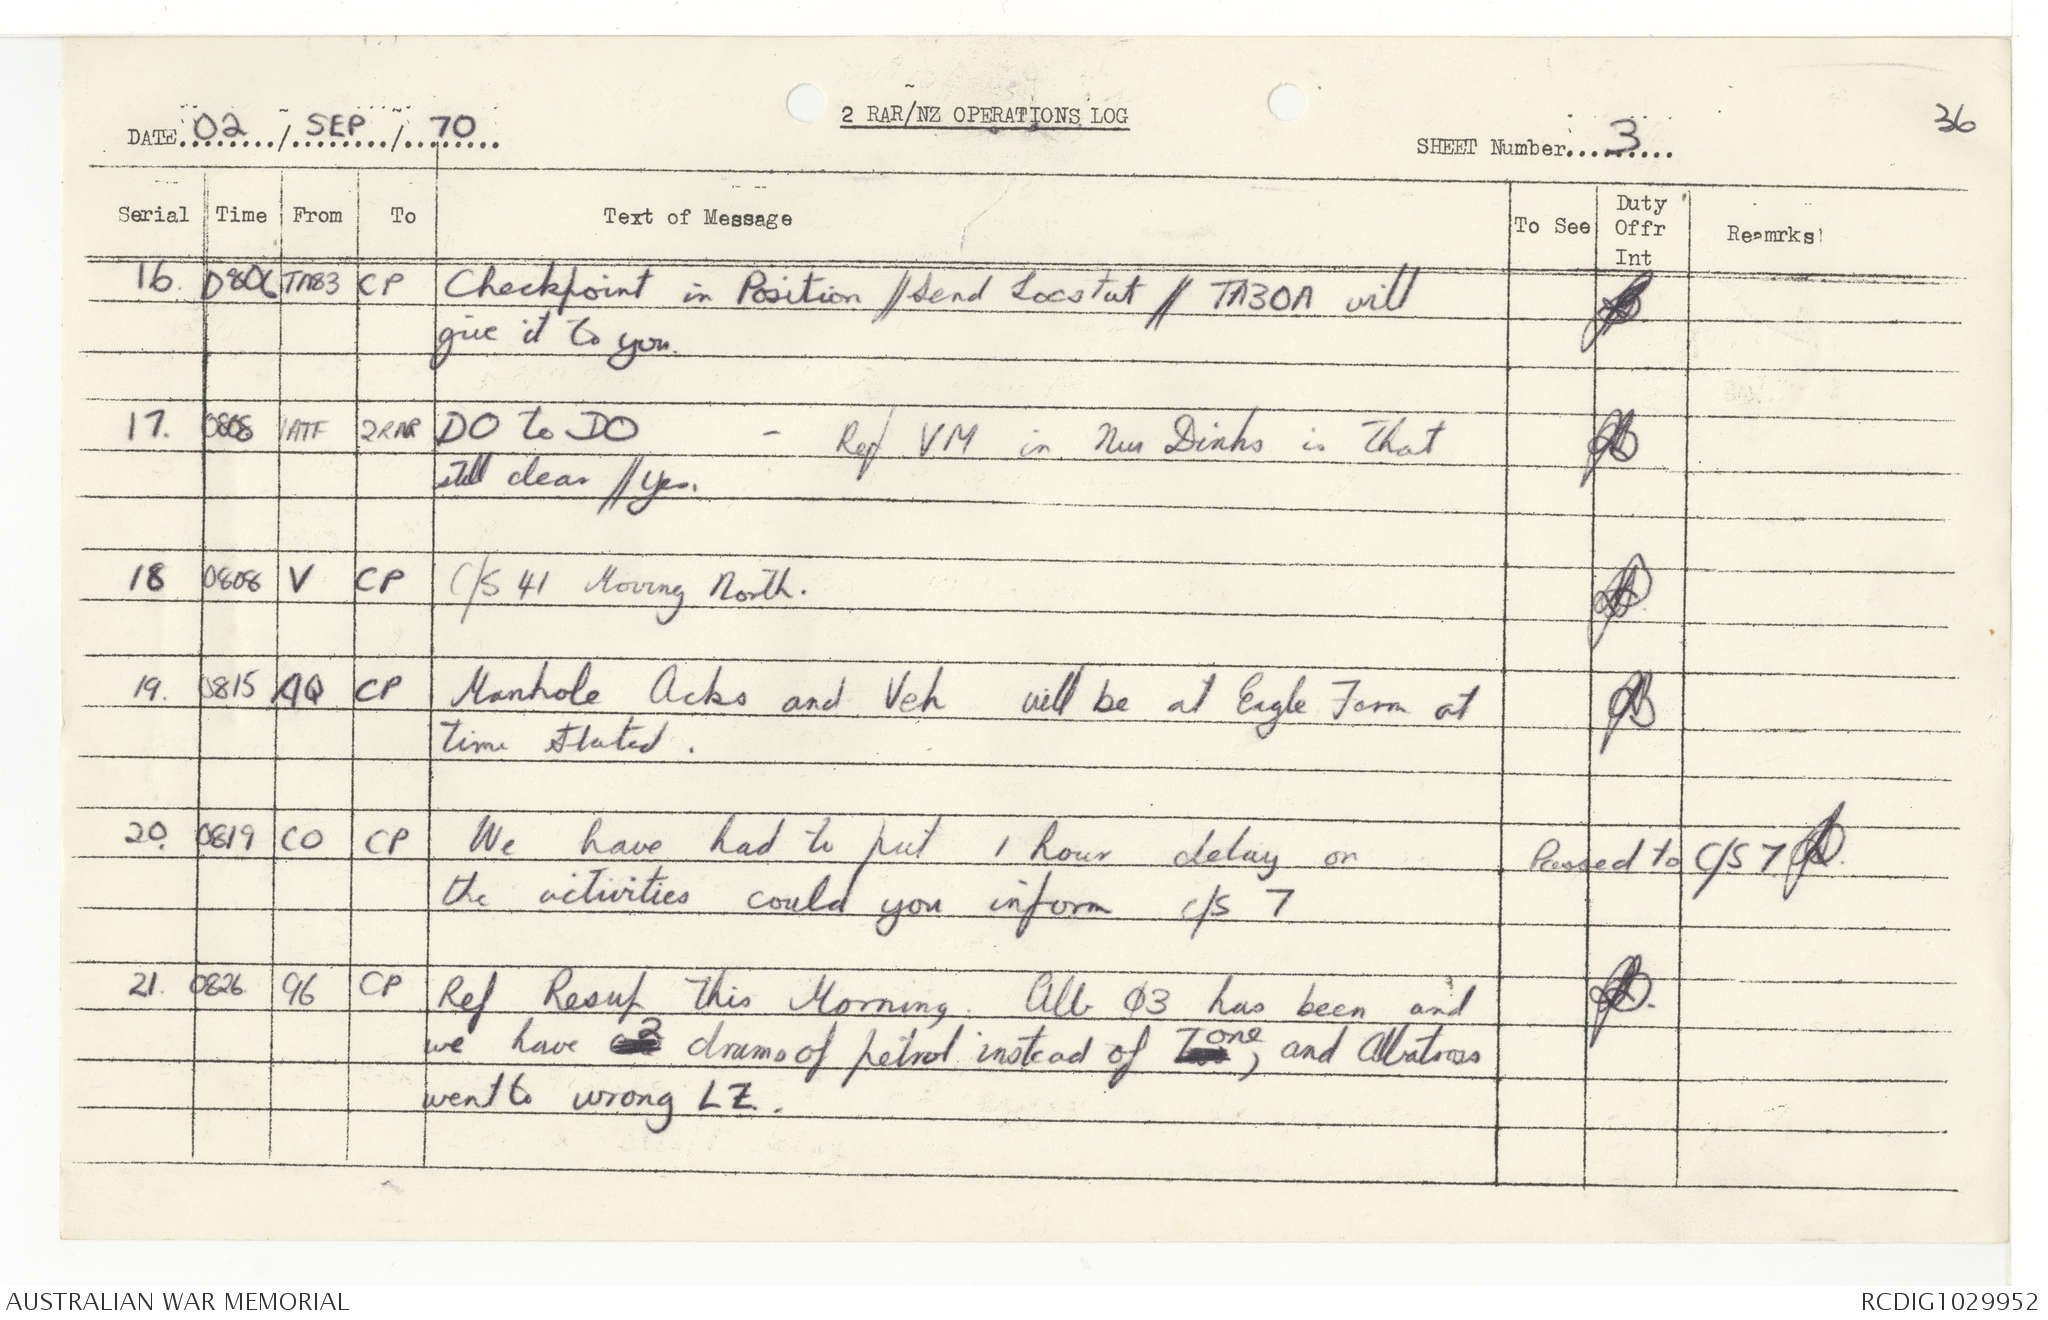 36
2 RAR/NZ OPERATIONS LOG
DATE 02 / SEP / 70
SHEET Number 3
Serial Time From To Text of Message To See Duty Offr Int Reamrks
16. 0806 TA83 CP Checkpoint in Position // Send Locstat // TA30A will
give it to you.
17. 0808 1ATF 2RAR DO to DO - Ref VM in Nui Dinhs is that
still clear // Yes.
18 0808 V CP C/S 41 Moving North.
19. 0815 AQ CP Manhole Acks and Veh will be at Eagle Farm at
time stated.
20. 0819 CO CP We have had to put 1 hour delay on Passed to C/S 7
the activities could you inform c/s 7
21. 0826 96 CP Ref Resup this Morning. Alb 03 has been and
we have 2 drums of petrol instead of one, and Albatross
went to wrong LZ.
AUSTRALIAN WAR MEMORIAL
RCDIG1029952